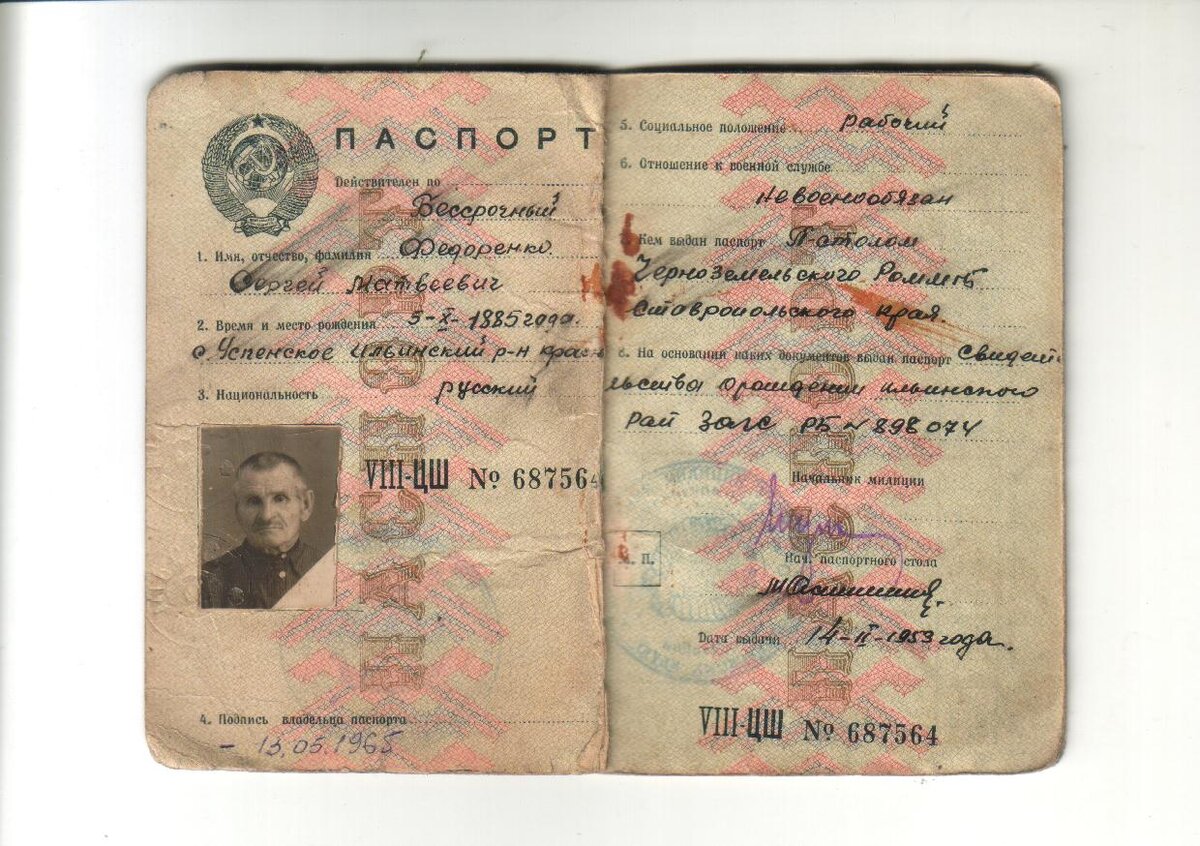 ПАСПОРТ
Действителен по
Бессрочный
1. Имя, отчество, фамилия Федоренко
Сергей Матвеевич
2. Время и место рождения 3-X-1885 года.
с. Успенское Ильинский р-н
3. Национальность русский
VIII-ЦШ № 687564
4. Подпись владельца паспорта
- 13,05.1965
5. Социальное положение рабочий
6. Отношение к военной службе
Невоеннообязан
Кем выдан паспорт П-столом
Черноземельского
Ставропольского края.
8. На основании каких документов выдан паспорт Свидет
льства о рождении Ильинского
рай Загс РБ № 898074
Начальник милиции
М. П.
Нач. паспортного стола
Дата выдачи 14-II-1953 года.
VIII-ЦШ № 687564